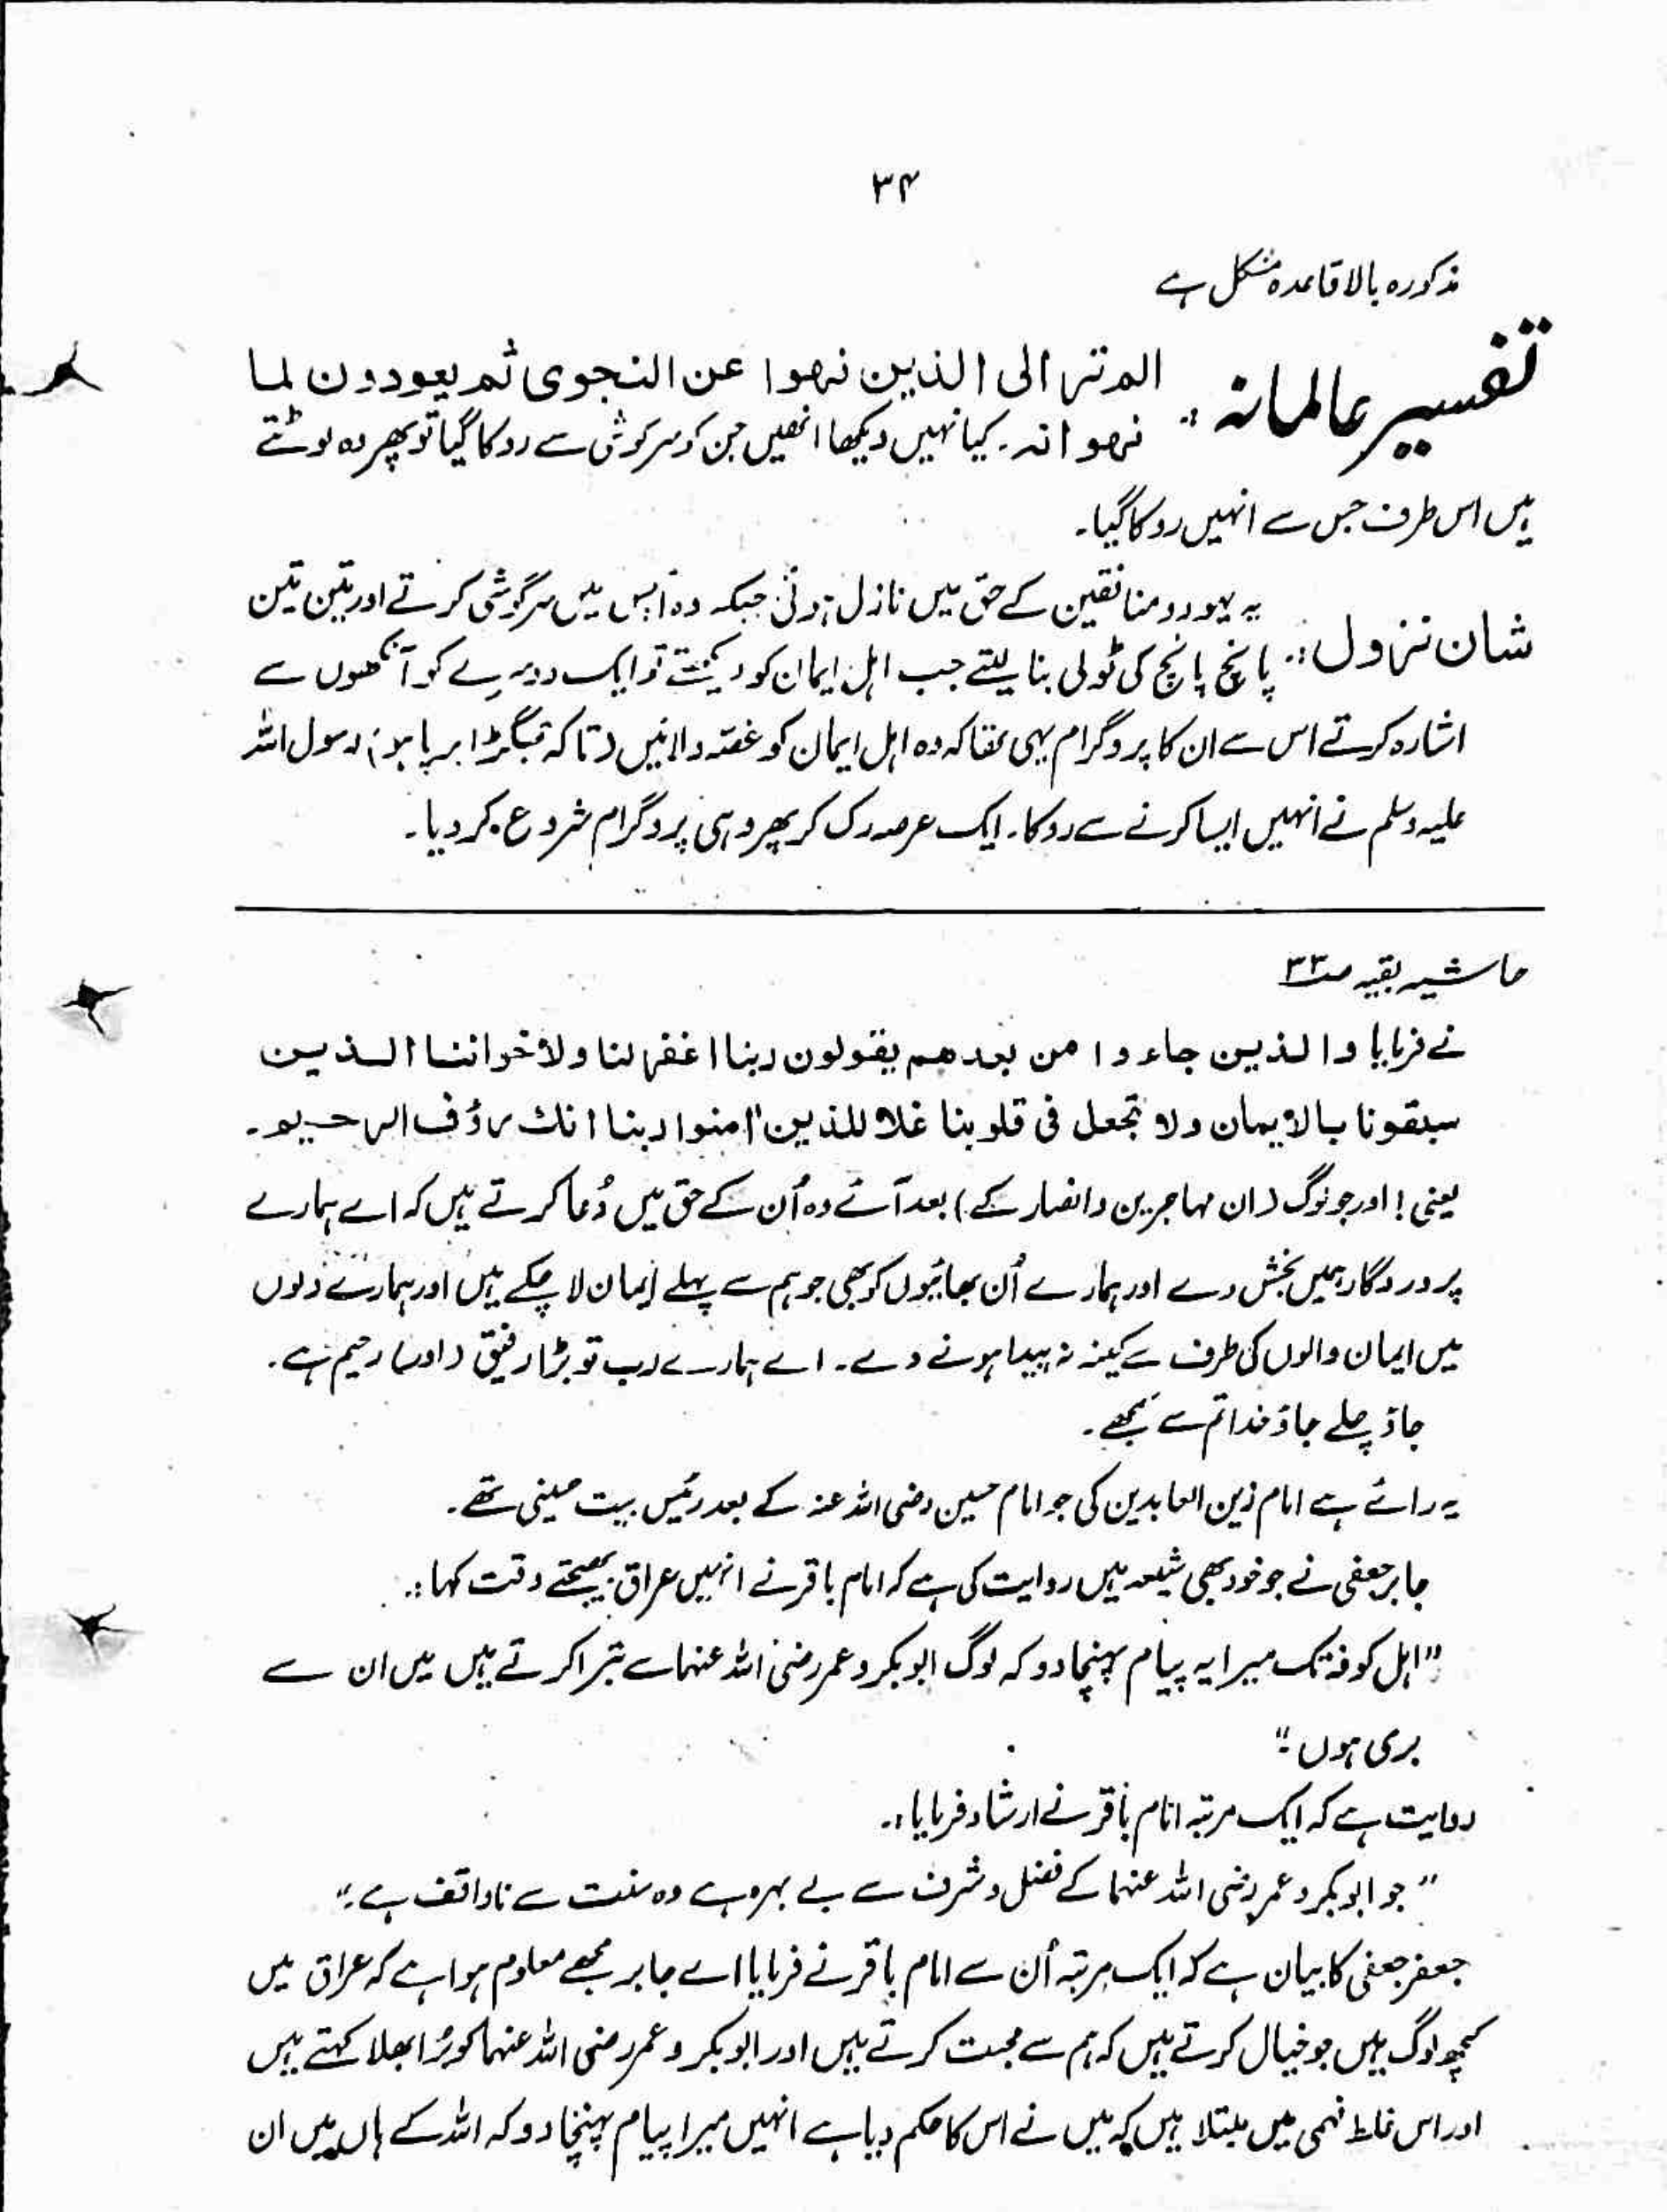 ۳۴
مذکورہ بالا قاعدہ مشکل ہے
تفسیر عالمانہ : الم تر الی الذین نھوا عن النجوی ثم یعودون لما
نھوا نہ ۔ کیا نہیں دیکھا انھیں جن کو سرگوشی سے روکا گیا تو پھر وہ لوٹتے
ہیں اس طرف جس سے انہیں روکا گیا ۔
شان نزول :۔ یہ یہود و منافقین کے حق میں نازل ہوئی جبکہ وہ آپس میں سرگوشی کرتے اور تین تین
پانچ پانچ کی ٹولی بنا لیتے جب اہل ایمان کو دیکھتے تو ایک دوسرے کو آنکھوں سے
اشارہ کرتے اس سے ان کا پروگرام یہی تھا کہ وہ اہل ایمان کو غصہ دلائیں (تاکہ جھگڑا برپا ہو) رسول اللہ
علیہ وسلم نے انہیں ایسا کرنے سے روکا ۔ ایک عرصہ رک کر پھر وہی پروگرام شروع کر دیا ۔
حاشیہ بقیہ صـ ۳۳
نے فرمایا والذین جاءوا من بعدھم یقولون ربنا اغفرلنا ولاخواننا الذین
سبقونا بالایمان ولا تجعل فی قلوبنا غلا للذین اٰمنوا ربنا انک رؤف الرحیم ۔
یعنی ! اور جو لوگ (ان مہاجرین و انصار کے) بعد آئے وہ اُن کے حق میں دُعا کرتے ہیں کہ اے ہمارے
پروردگار ہمیں بخش دے اور ہمارے اُن بھائیوں کو بھی جو ہم سے پہلے ایمان لا چکے ہیں اور ہمارے دلوں
میں ایمان والوں کی طرف سے کینہ نہ پیدا ہونے دے ۔ اے ہمارے رب تو بڑا رفیق (اور) رحیم ہے ۔
جاؤ چلے جاؤ خدا تم سے سمجھے ۔
یہ رائے ہے امام زین العابدین کی جو امام حسین رضی اللہ عنہ کے بعد رئیس بیت حسینی تھے ۔
جابر جعفی نے جو خود بھی شیعہ ہیں روایت کی ہے کہ امام باقر نے انہیں عراق بھیجتے وقت کہا :۔
"اہل کوفہ تک میرا یہ پیام پہنچا دو کہ لوگ ابو بکر و عمر رضی اللہ عنہما سے تبرا کرتے ہیں میں ان سے
بری ہوں ؛"
روایت ہے کہ ایک مرتبہ امام باقر نے ارشاد فرمایا :۔
" جو ابو بکر و عمر رضی اللہ عنہما کے فضل و شرف سے بے بہرہ ہے وہ سنت سے ناواقف ہے ؛"
جعفر جعفی کا بیان ہے کہ ایک مرتبہ اُن سے امام باقر نے فرمایا اے جابر مجھے معلوم ہوا ہے کہ عراق میں
کچھ لوگ ہیں جو خیال کرتے ہیں کہ ہم سے محبت کرتے ہیں اور ابو بکر و عمر رضی اللہ عنہما کو بُرا بھلا کہتے ہیں
اور اس غلط فہمی میں مبتلا ہیں کہ میں نے اس کا حکم دیا ہے انہیں میرا پیام پہنچا دو کہ اللہ کے ہاں میں ان